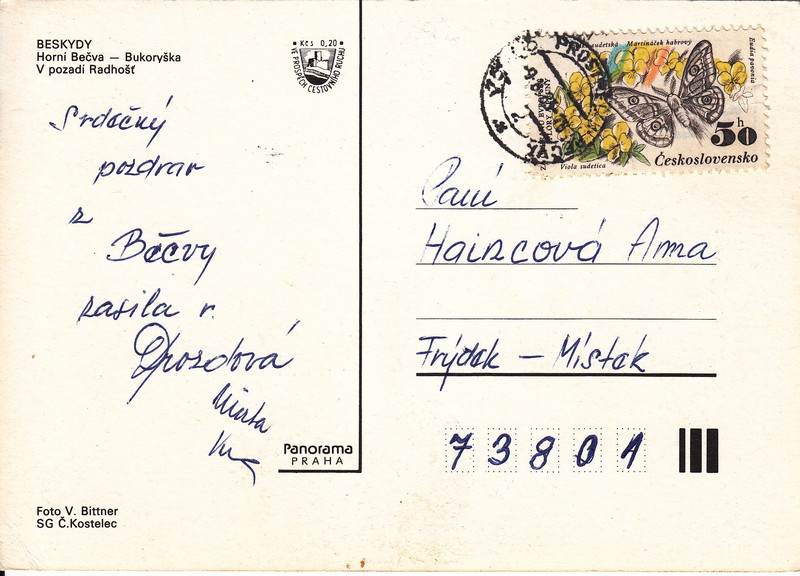 BESKYDY
Horní Bečva — Bukoryška
V pozadí Radhošť
Kčs 0,20
VE PROSPĚCH CESTOVNÍHO RUCHU
Srdečný
pozdrav
z
Bečvy
zasílá r.
Drozdová
Panorama
PRAHA
Foto V. Bittner
SG Č.Kostelec
Martináček habrový
Eudia pavonia
Viola sudetica
50 h
Československo
Paní
Hainzcová Anna
Frýdek — Místek
73801